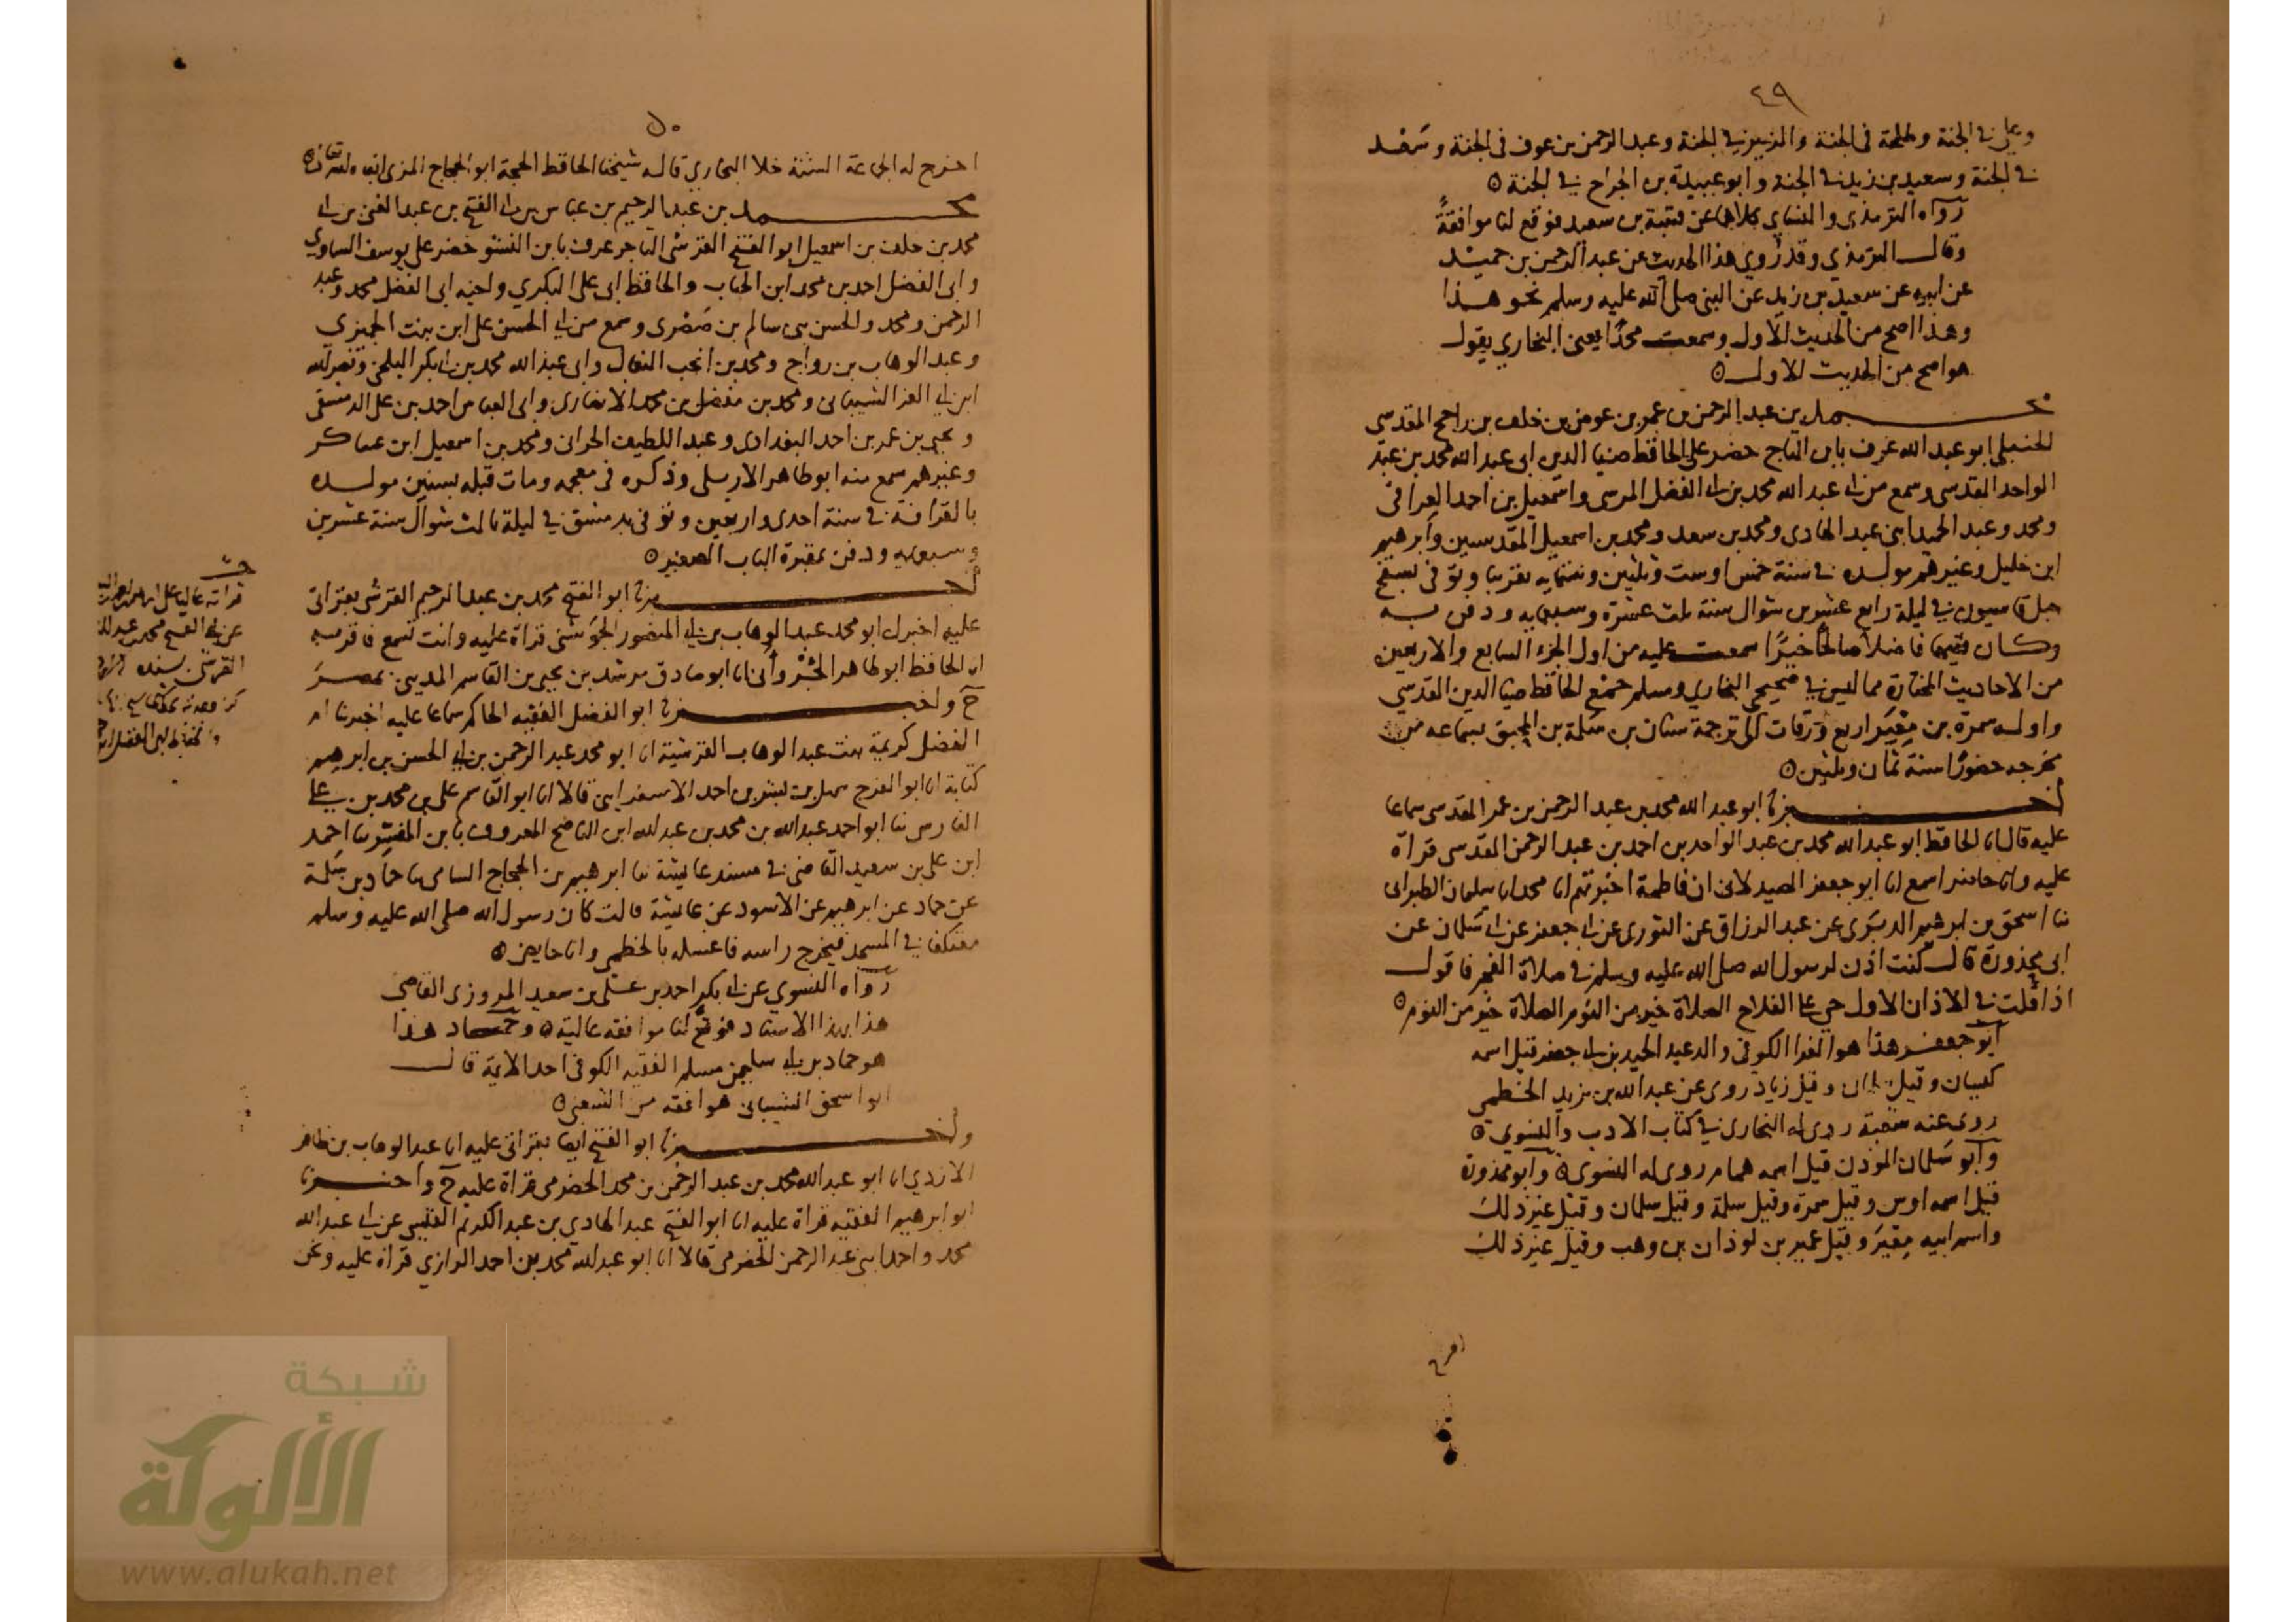 ٤٩
وعلي في الجنة وطلحة في الجنة والزبير في الجنة وعبد الرحمن بن عوف في الجنة وسعد
في الجنة وسعيد بن زيد في الجنة وابو عبيدة بن الجراح في الجنة
رواه الترمذي والنسائي كلاهما عن قتيبة بن سعيد فوقع لنا موافقةً
وقال الترمذي وقد رُوي هذا الحديث عن عبد الرحمن بن حميد
عن ابيه عن سعيد بن زيد عن النبي صلى الله عليه وسلم نحو هذا
وهذا اصح من الحديث الاول وسمعت محمدًا يعني البخاري يقول
هو اصح من الحديث الاول
محمد بن عبد الرحمن بن عمر بن عوض بن خلف بن راجح المقدسي
الحنبلي ابو عبد الله عرف بابن التاج حضر على الحافظ ضيا الدين ابي عبد الله محمد بن عبد
الواحد المقدسي وسمع من ابي عبد الله محمد بن ابي الفضل المرسي واسمعيل بن احمد العراقي
ومحمد وعبد الحميد ابني عبد الهادي ومحمد بن سعد ومحمد بن اسمعيل المقدسيين وابرهيم
ابن خليل وغيرهم مولده في سنة خمس او ست وثلثين وستمايه تقريبا وتوفي بسفح
جبل قاسيون في ليلة رابع عشرين شوال سنة ثلث عشرة وسبعمايه ودفن به
وكان فقيها فاضلا صالحًا خيرًا سمعت عليه من اول الجزء السابع والاربعين
من الاحاديث المختارة مما ليس في صحيحي البخاري ومسلم جمع الحافظ ضيا الدين المقدسي
واوله سمرة بن مِعْيَر اربع ورقات الى ترجمة سنان بن سلمة بن المحبق بسماعه من
مخرجه حضورًا سنة ثمان وثلثين
اخبرنا ابو عبد الله محمد بن عبد الرحمن بن عمر المقدسي سماعا
عليه قال انا الحافظ ابو عبد الله محمد بن عبد الواحد بن احمد بن عبد الرحمن المقدسي قراة
عليه وانا حاضر اسمع انا ابو جعفر الصيدلاني ان فاطمة اخبرتهم انا محمد انا سليمان الطبراني
ثنا اسحق بن ابرهيم الدبري عن عبد الرزاق عن الثوري عن ابي جعفر عن ابي سلمان عن
ابي محذورة قال كنت اذن لرسول الله صلى الله عليه وسلم في صلاة الفجر فاقول
اذا قلت في الاذان الاول حي على الفلاح الصلاة خير من النوم الصلاة خير من النوم
ابو جعفر هذا هو الفرا الكوفي والد عبد الحميد بن ابي جعفر قيل اسمه
كيسان وقيل سلمان وقيل زياد روى عن عبد الله بن يزيد الخطمي
روى عنه شعبة روى له البخاري في كتاب الادب والنسوي
وابو سلمان الموذن قيل اسمه همام روى له النسوي وابو محذورة
قيل اسمه اوس وقيل سمرة وقيل سلمة وقيل سلمان وقيل غير ذلك
واسم ابيه مِعْيَر وقيل عمير بن لوذان بن وهب وقيل غير ذلك
اخرج
٥٠
اخرج له الجماعة الستة خلا البخاري قاله شيخنا الحافظ الحجة ابو الحجاج المزي ابقاه الله تعالى
محمد بن عبد الرحيم بن عباس بن ابي الفتح بن عبد الغني بن ابي
محمد بن خلف بن اسمعيل ابو الفتح القرشي التاجر عرف بابن النشو حضر على يوسف الساوي
وابي الفضل احمد بن محمد ابن الحباب والحافظ ابي علي البكري واخيه ابي الفضل محمد وعبد
الرحمن ومحمد والحسن بني سالم بن صَصْرى وسمع من ابي الحسن علي ابن بنت الجميزي
وعبد الوهاب بن رواج ومحمد بن انجب النعال وابي عبد الله محمد بن ابي بكر البلخي ونصر الله
ابن ابي العز الشيباني ومحمد بن مفضل بن محمد الانصاري وابي العباس احمد بن علي الدمشقي
ويحيى بن عمر بن احمد البغدادي وعبد اللطيف الحراني ومحمد بن اسمعيل ابن عساكر
وغيرهم سمع منه ابو طاهر الاربلي وذكره في معجمه ومات قبله بسنين مولده
بالقرافة في سنة احدى واربعين وتوفي بدمشق في ليلة ثالث شوال سنة عشرين
وسبعمايه ودفن بمقبرة الباب الصغير
اخبرنا ابو الفتح محمد بن عبد الرحيم القرشي بقراتي
عليه اخبرك ابو محمد عبد الوهاب بن ابي المنصور الجَوشني قراة عليه وانت تسمع فاقر به
انا الحافظ ابو طاهر الجَبْرواني انا ابو صادق مرشد بن يحيى بن القاسم المديني بمصر
ح واخبرنا ابو الفضل الفقيه الحاكم سماعا عليه اخبرتنا ام
الفضل كريمة بنت عبد الوهاب القرشية انا ابو محمد عبد الرحمن بن ابي الحسن بن ابرهيم
كتابة انا ابو الفرج سهل بن بشر بن احمد الاسفرايني قالا انا ابو القاسم علي بن محمد بن علي
الفارسي ثنا ابو احمد عبد الله بن محمد بن عبد الله ابن الناصح المعروف بابن المفسر ثنا احمد
ابن علي بن سعيد القاضي في مسند عائشة ثنا ابرهيم بن الحجاج السامي ثنا حماد بن سلمة
عن حماد عن ابرهيم عن الاسود عن عائشة قالت كان رسول الله صلى الله عليه وسلم
معتكفا في المسجد فيخرج راسه فاغسله بالخطمي وانا حايض
رواه النسوي عن ابي بكر احمد بن علي بن سعيد المروزي القاضي
هذا بهذا الاسناد فوقع لنا موافقة عالية وحماد هذا
هو حماد بن ابي سليمن مسلم الفقيه الكوفي احد الايمة قال
ابو اسحق الشيباني هو افقه من الشعبي
واخبرنا ابو الفتح ايضا بقراتي عليه انا عبد الوهاب بن ظافر
الازدي انا ابو عبد الله محمد بن عبد الرحمن بن محمد الحضرمي قراة عليه ح واخبرنا
ابو ابرهيم الفقيه قراة عليه انا ابو الفتح عبد الهادي بن عبد الكريم القيسي عن ابي عبد الله
محمد واحمد ابني عبد الرحمن الحضرمي قالا انا ابو عبد الله محمد بن احمد الرازي قراة عليه ونحن
قراته عاليا على
عن ابي الفتح محمد بن عبد
القرشي بسنده
شبكة
الألوكة
www.alukah.net